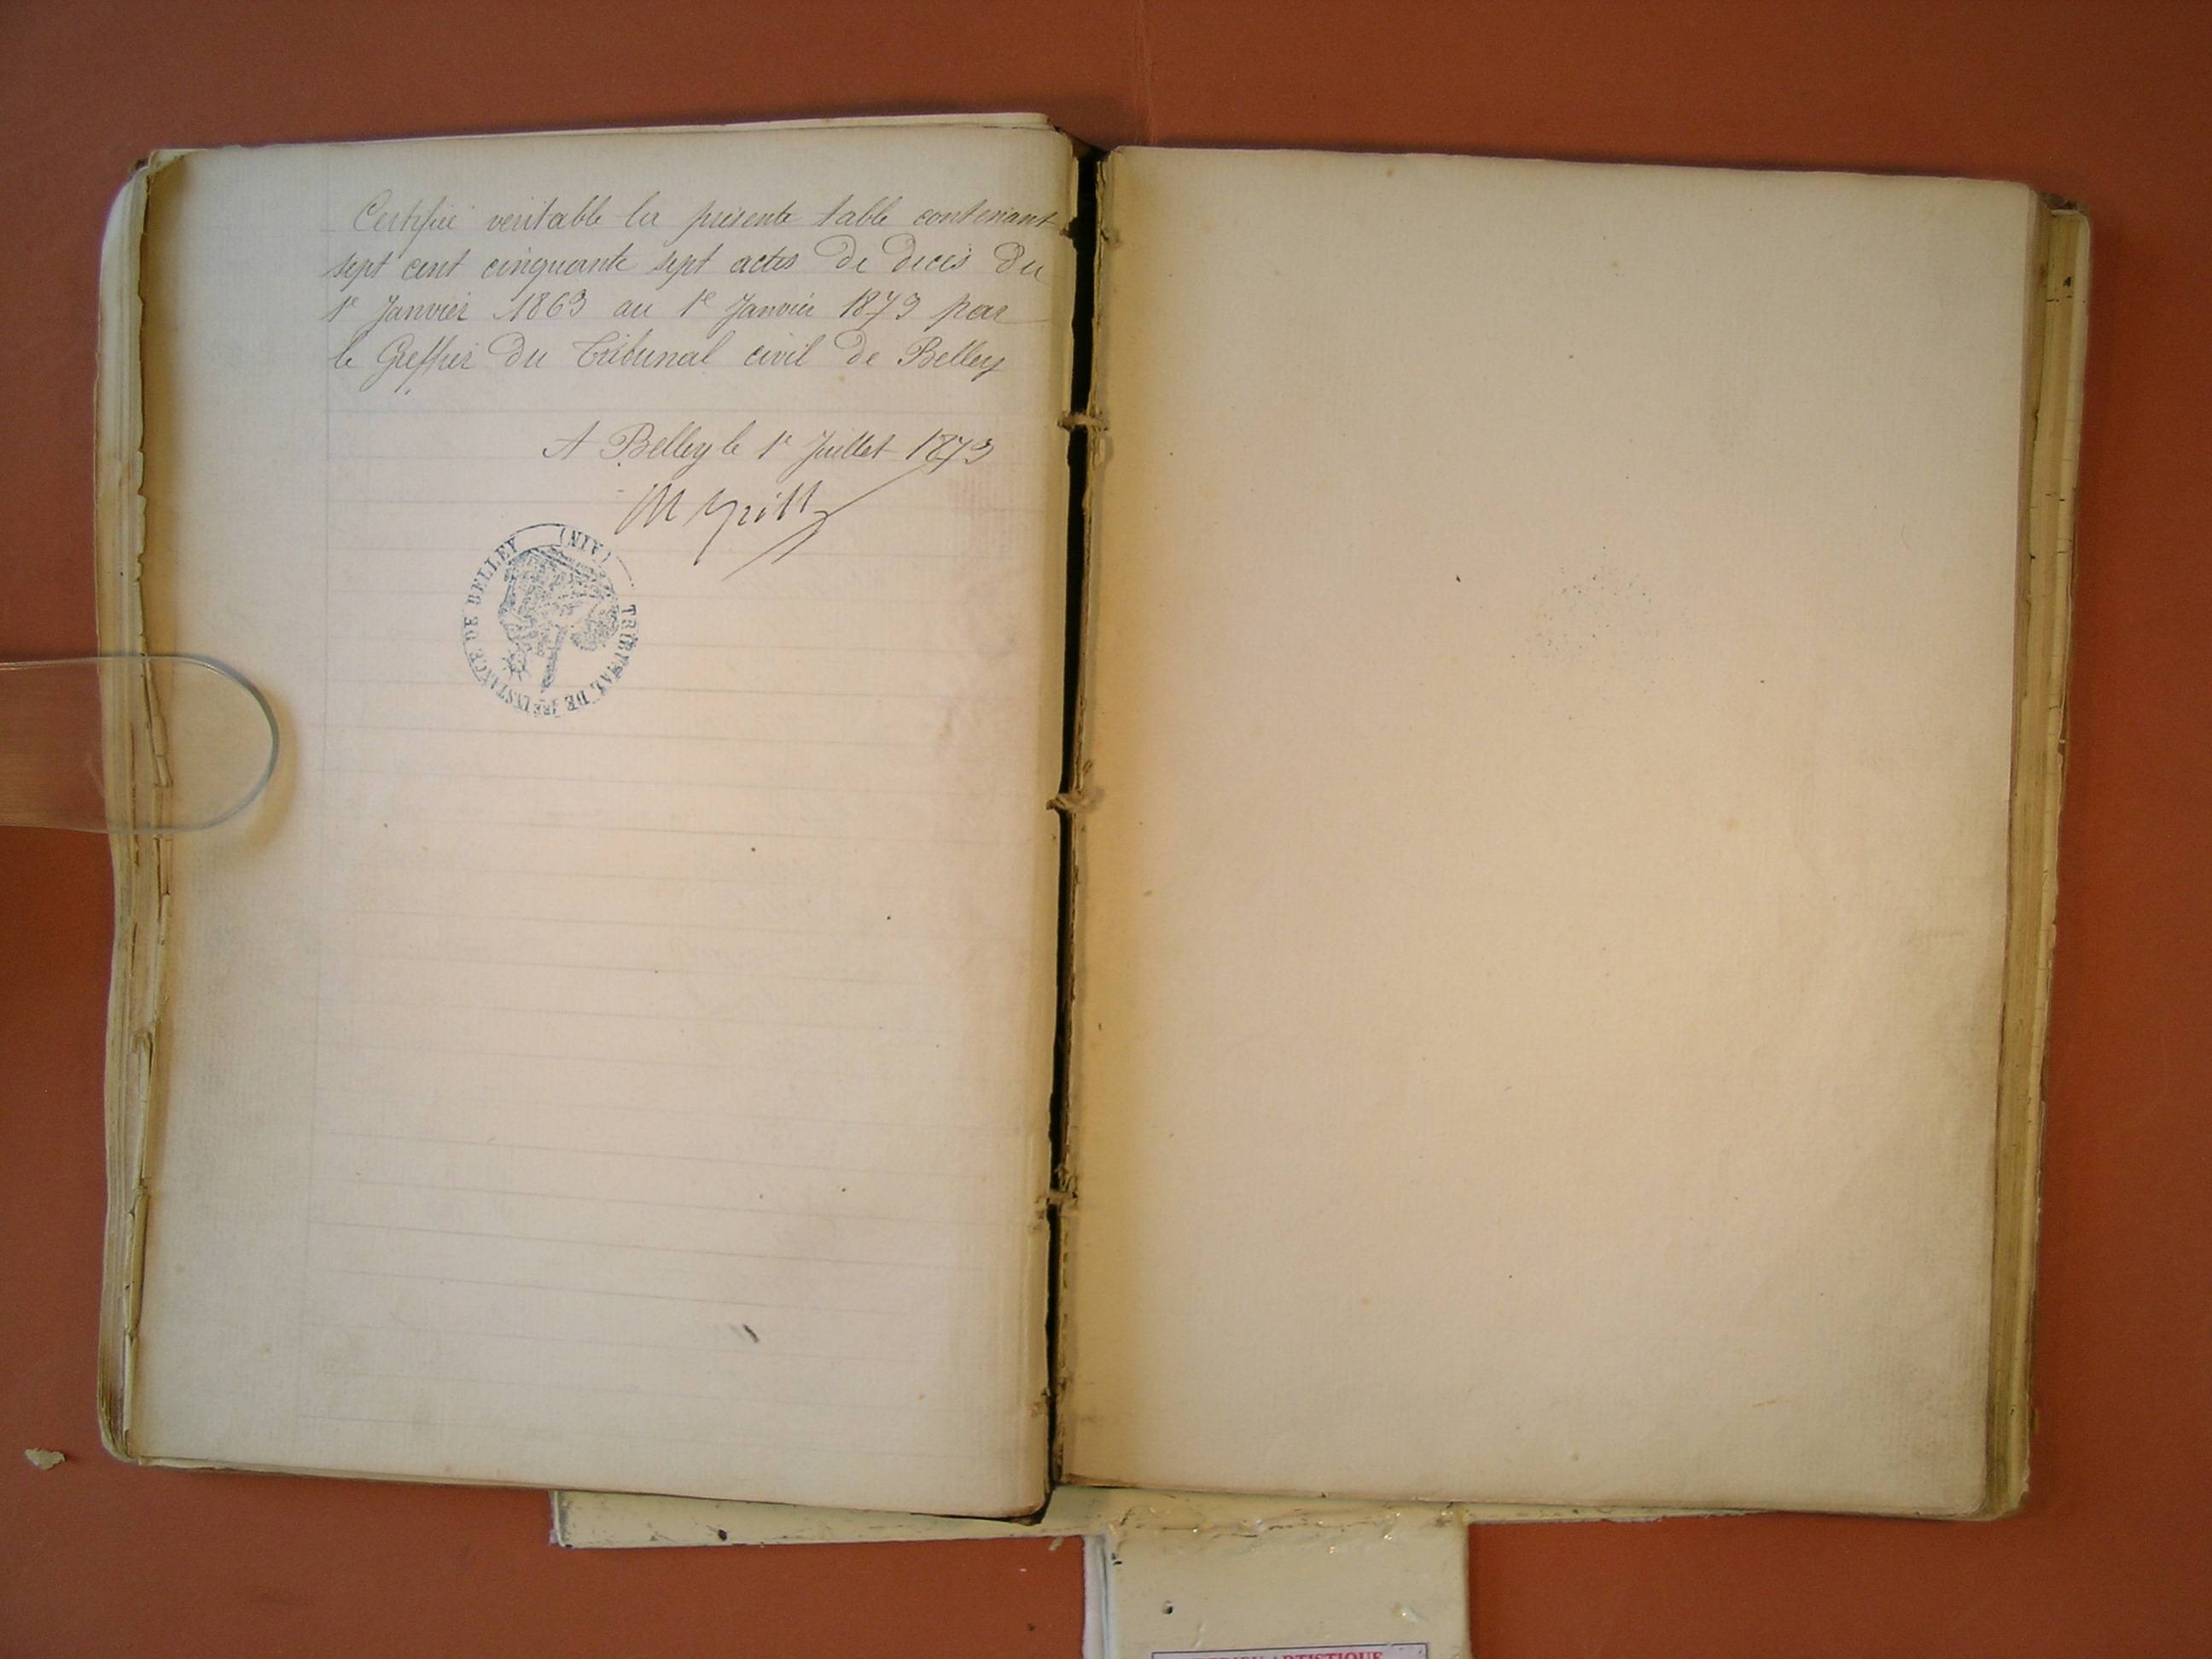 Certifié veritable la présente table contenant
sept cent cinquante sept actes de décès du
1e Janvier 1863 au 1e Janvier 1873 par
le Greffier du Tribunal civil de Belley
A Belley le 1e Juillet 1873
TRIBUNAL DE 1RE INSTANCE DE BELLEY (AIN)
ARTISTIQUE